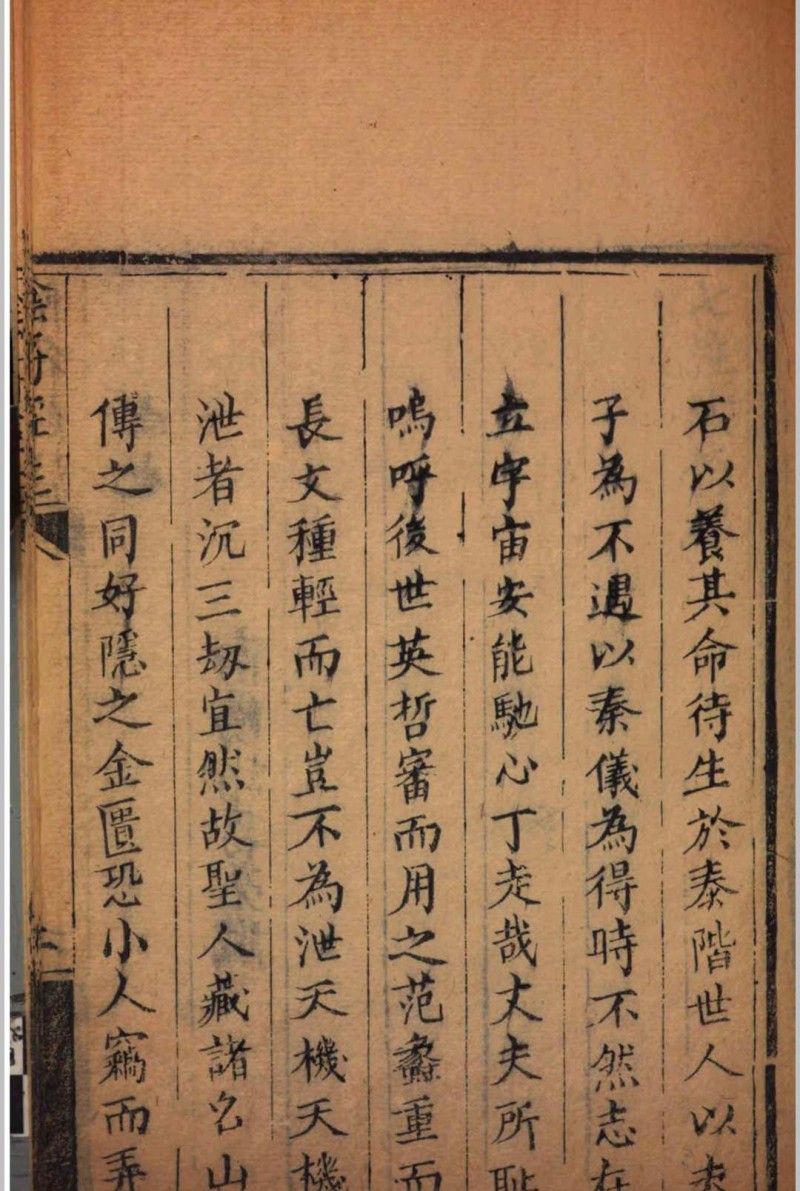 石以養其命待生於泰階世人以夫
子為不遇以秦儀為得時不然志在
立宇宙安能馳心丁走哉丈夫所恥
嗚呼後世英哲審而用之范蠡重而
長文種輕而亡豈不為泄天機天機
泄者沉三劫宜然故聖人藏諸名山
傳之同好隱之金匱恐小人竊而弄